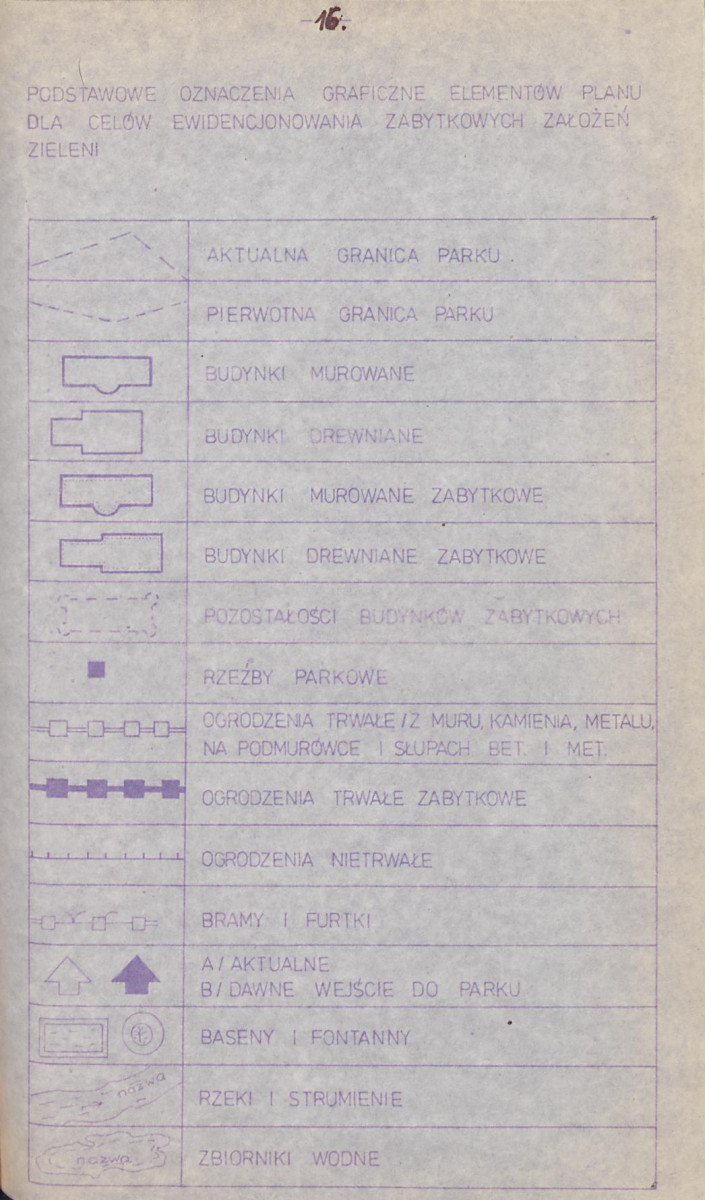 -16.
PODSTAWOWE OZNACZENIA GRAFICZNE ELEMENTÓW PLANU
DLA CELÓW EWIDENCJONOWANIA ZABYTKOWYCH ZAŁOŻEŃ
ZIELENI
AKTUALNA GRANICA PARKU.
PIERWOTNA GRANICA PARKU
BUDYNKI MUROWANE
BUDYNKI DREWNIANE
BUDYNKI MUROWANE ZABYTKOWE
BUDYNKI DREWNIANE ZABYTKOWE
POZOSTAŁOŚCI BUDYNKÓW ZABYTKOWYCH
RZEŹBY PARKOWE
OGRODZENIA TRWAŁE /Z MURU, KAMIENIA, METALU,
NA PODMURÓWCE I SŁUPACH BET. I MET.
OGRODZENIA TRWAŁE ZABYTKOWE
OGRODZENIA NIETRWAŁE
BRAMY I FURTKI
A/ AKTUALNE
B/ DAWNE WEJŚCIE DO PARKU
BASENY I FONTANNY
nazwa
RZEKI I STRUMIENIE
nazwa
ZBIORNIKI WODNE